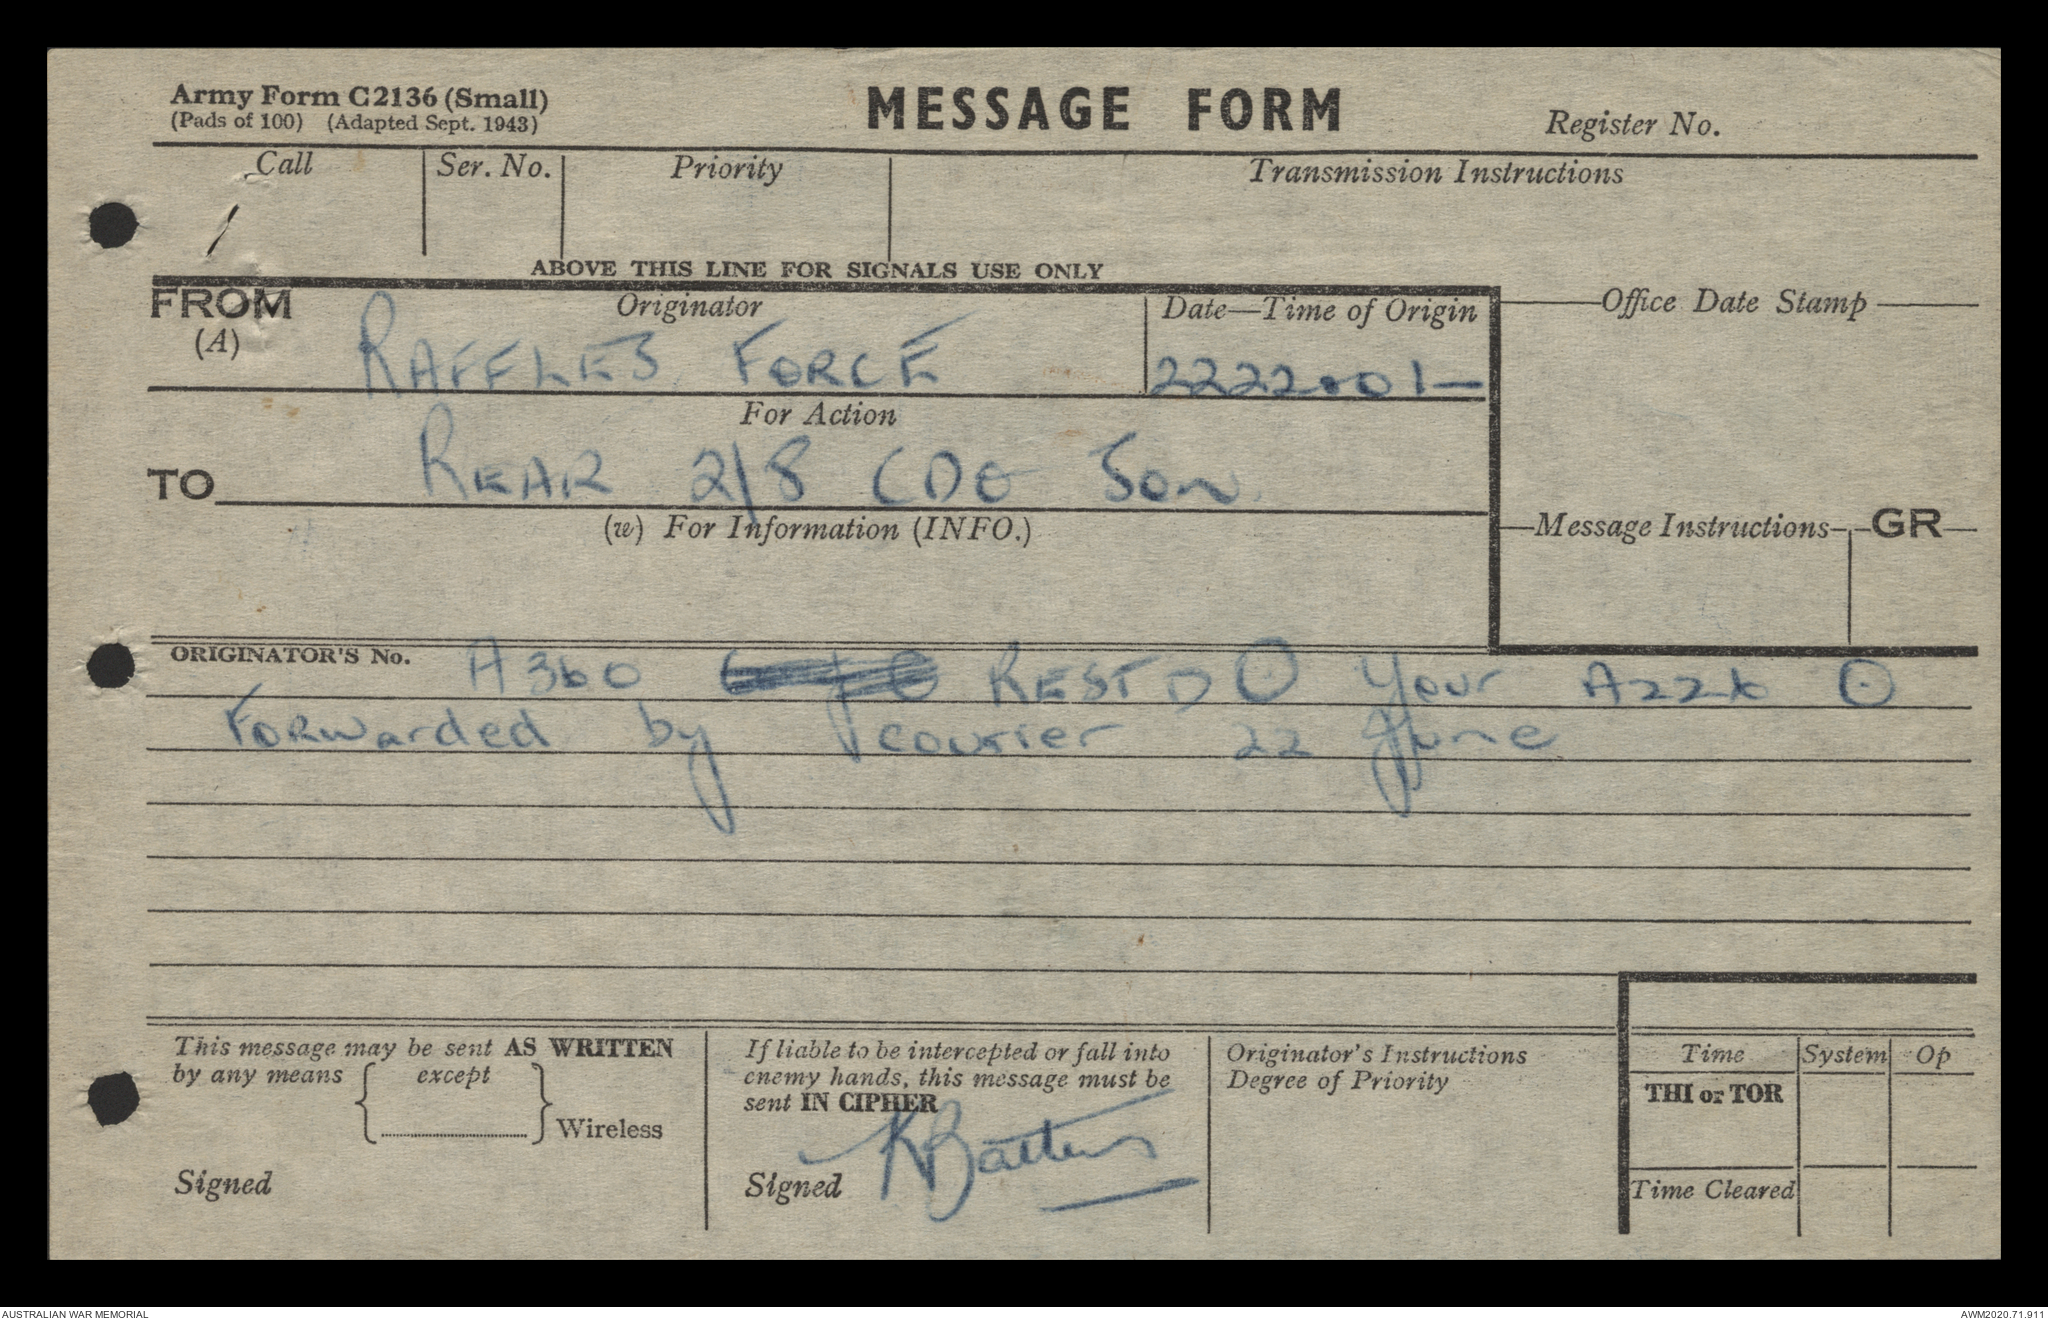 Army Form C2136 (Small)
(Pads of 100) (Adapted Sept. 1943)
MESSAGE FORM
Register No.
Call
Ser. No.
Priority
Transmission Instructions
ABOVE THIS LINE FOR SIGNALS USE ONLY
FROM
(A)
Originator
RAFFLES FORCE
Date—Time of Origin
Office Date Stamp
For Action
TO
REAR 2/8 CDO Sqn
(w) For Information (INFO.)
Message Instructions
GR
ORIGINATOR'S No.
A360 RESTD ⊙ Your A226 ⊙
Forwarded by courier 22 June
This message may be sent AS WRITTEN
by any means { except
} Wireless
Signed
If liable to be intercepted or fall into
enemy hands, this message must be
sent IN CIPHER
Signed
Originator's Instructions
Degree of Priority
Time
System
Op
THI or TOR
Time Cleared
AUSTRALIAN WAR MEMORIAL
AWM2020.71.911